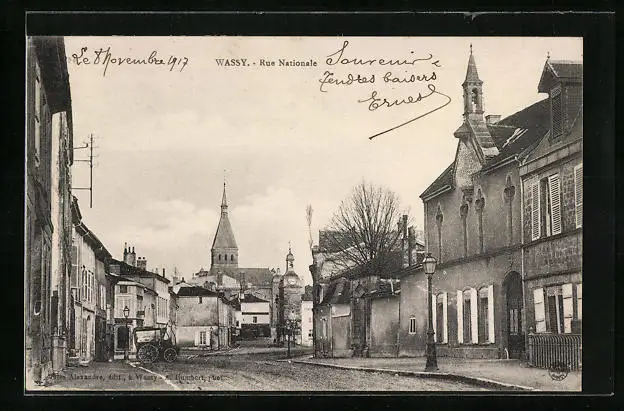 Le 8 Novembre 1917
WASSY. - Rue Nationale
Souvenir
Tendres baisers
Ernest
Alexandre, édit., à Wassy - Humbert, phot.